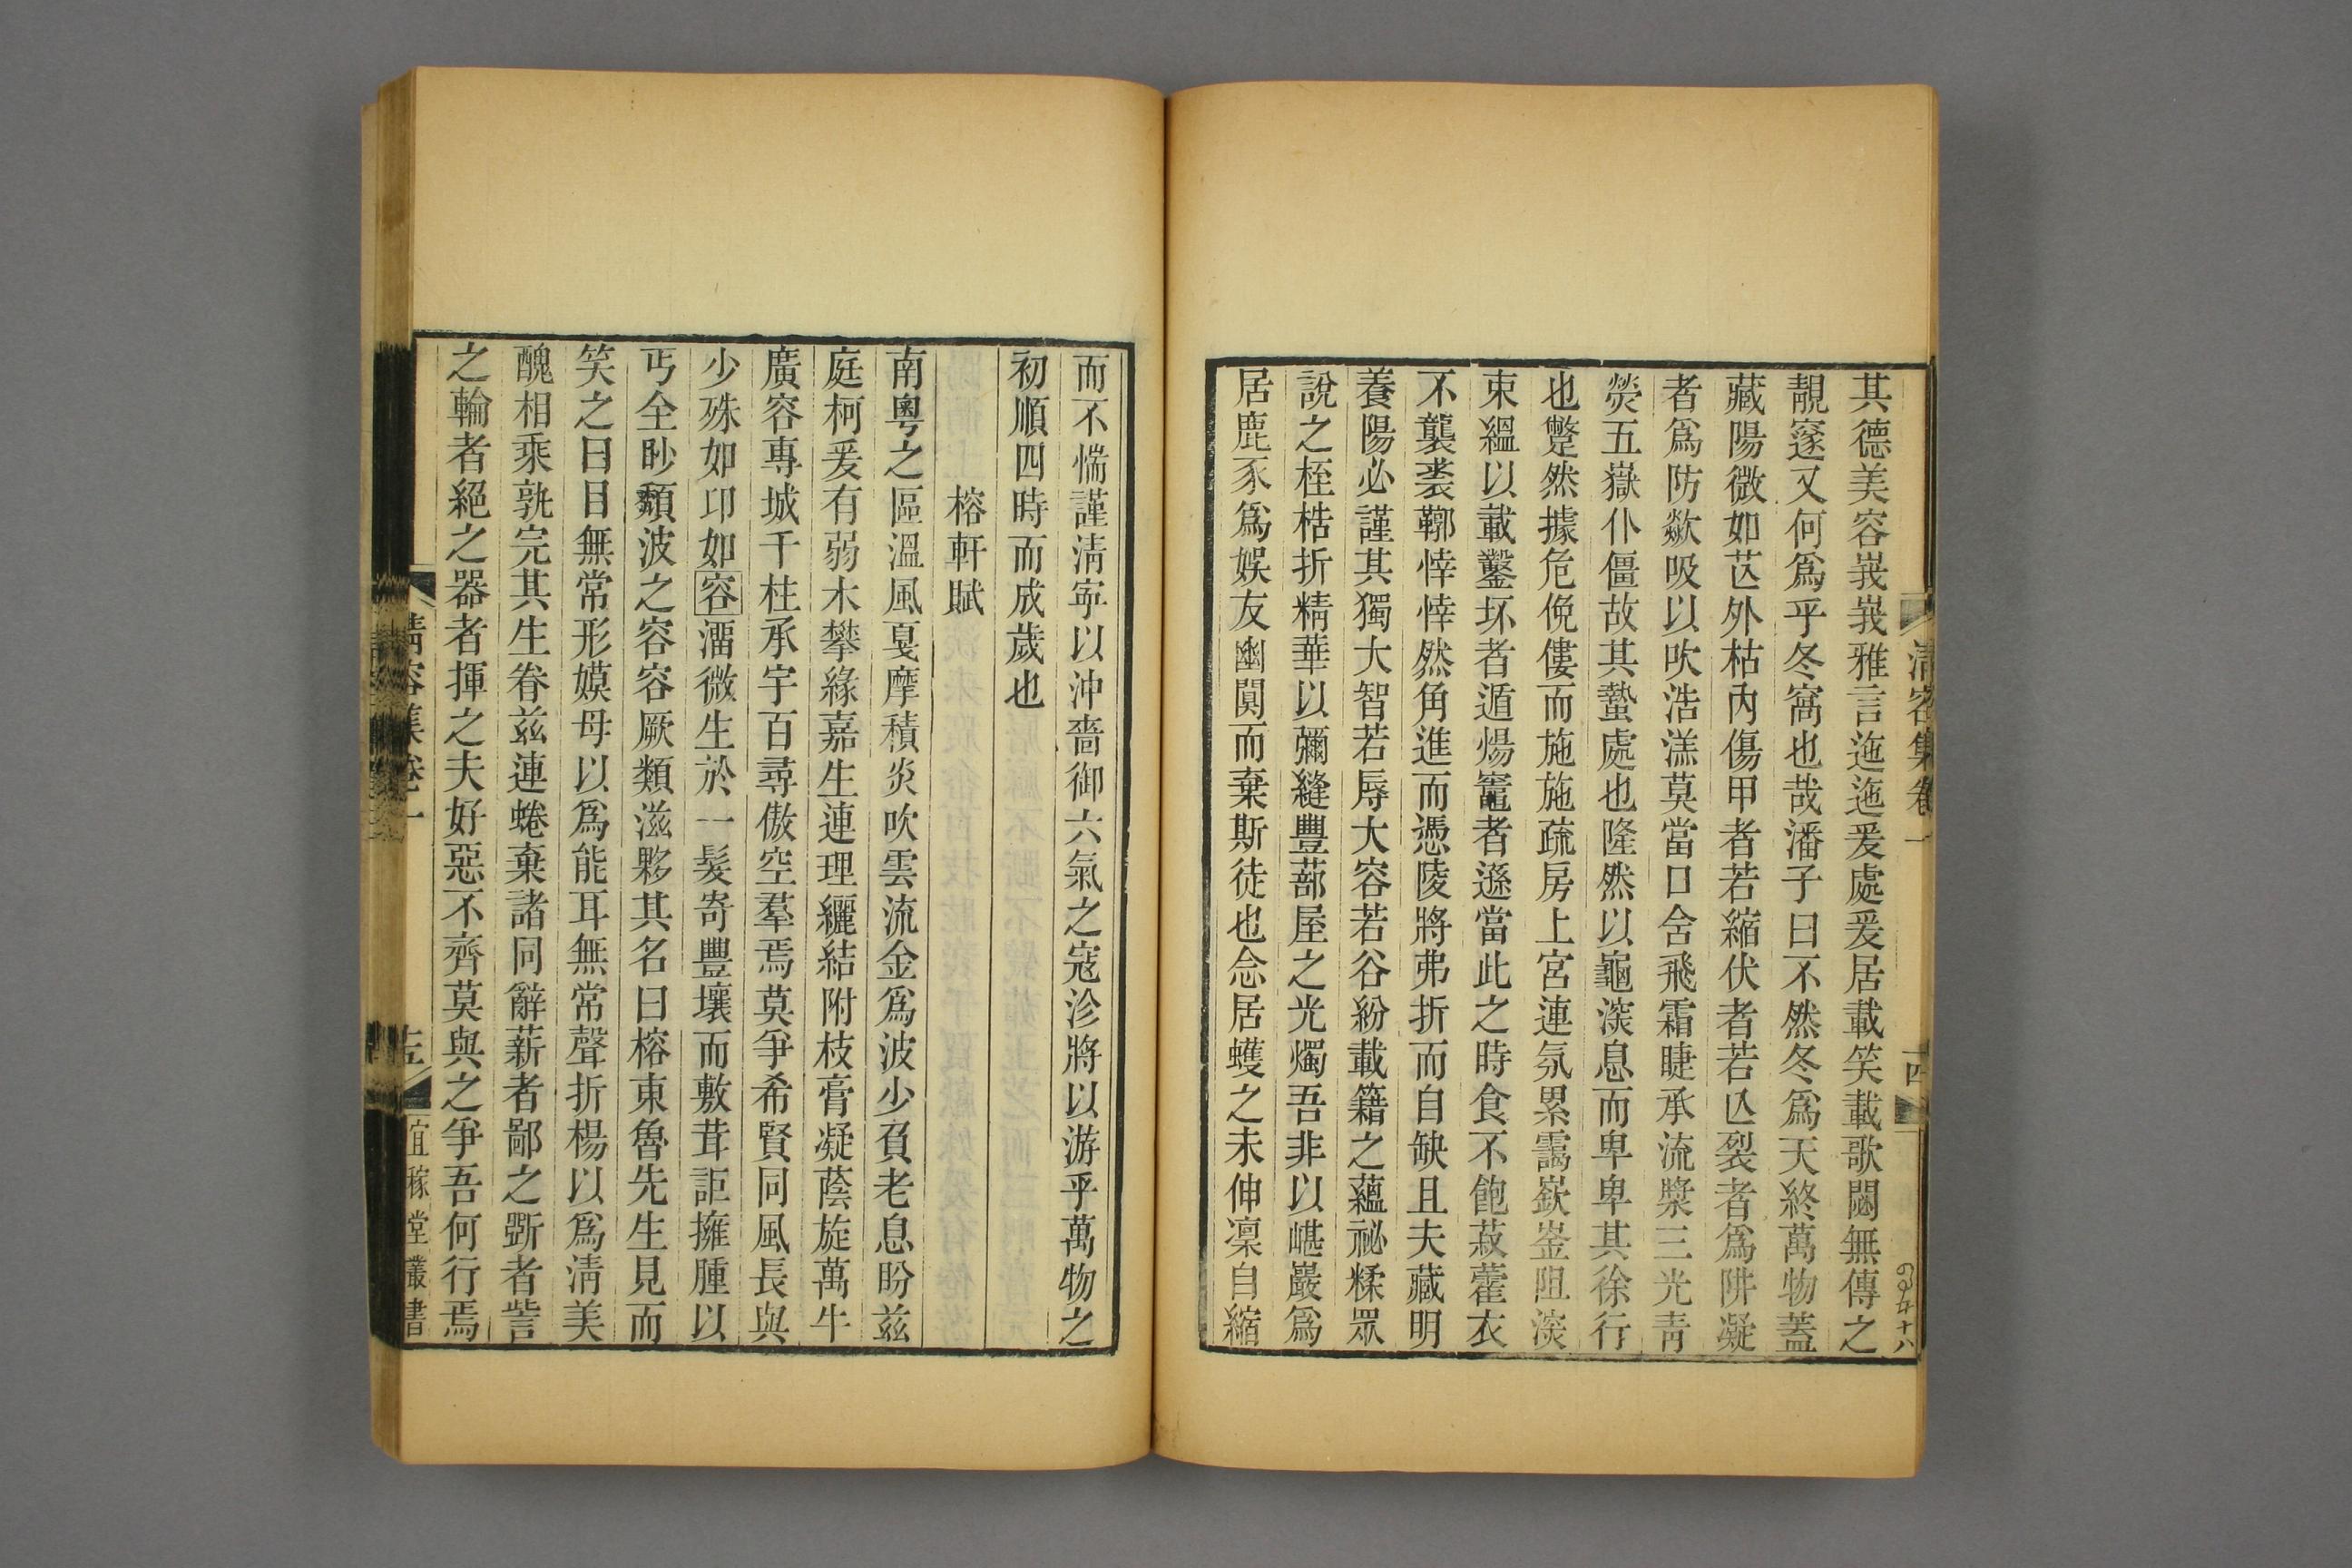 清容集卷一
十四
其德美容峩峩雅言迤迤爰處爰居載笑載歌閟無傳之
靚窔又何爲乎冬窩也哉潘子曰不然冬爲天終萬物蓋
藏陽微如芯外枯內傷甲者若縮伏者若亾裂者爲阱凝
者爲防歘吸以吹浩漾莫當口舍飛霜睫承流漿三光靑
熒五嶽仆僵故其蟄處也隆然以龜湥息而卑卑其徐行
也蹩然據危俛僂而施施疏房上宮連氛累靄嶔崟阻湥
束縕以載鑿坏者遁煬竈者遜當此之時食不飽菽藿衣
不襲裘鞹悻悻然角進而憑陵將弗折而自缺且夫藏明
養陽必謹其獨大智若辱大容若谷紛載籍之蘊祕糅眾
說之桎梏折精華以彌縫豐蔀屋之光燭吾非以嵁巖爲
居鹿豕爲娛友幽闃而棄斯徒也念居蠖之未伸凜自縮
而不惴謹淸寍以沖嗇御六氣之寇沴將以游乎萬物之
初順四時而成歲也
榕軒賦
南粵之區溫風戛摩積炎吹雲流金爲波少負老息盼兹
庭柯爰有弱木攀緣嘉生連理纚結附枝膏凝蔭旋萬牛
廣容專城千柱承宇百尋傲空羣焉莫爭希賢同風長與
少殊如卬如容濇微生於一髮寄豐壤而敷茸詎擁腫以
丐全眇頹波之容容厥類滋夥其名曰榕東魯先生見而
笑之曰目無常形嫫母以爲能耳無常聲折楊以爲淸美
醜相乘孰完其生眷兹連蜷棄諸同辭薪者鄙之斵者訾
之輪者絕之器者揮之夫好惡不齊莫與之爭吾何行焉
清容集卷一
宜稼堂叢書